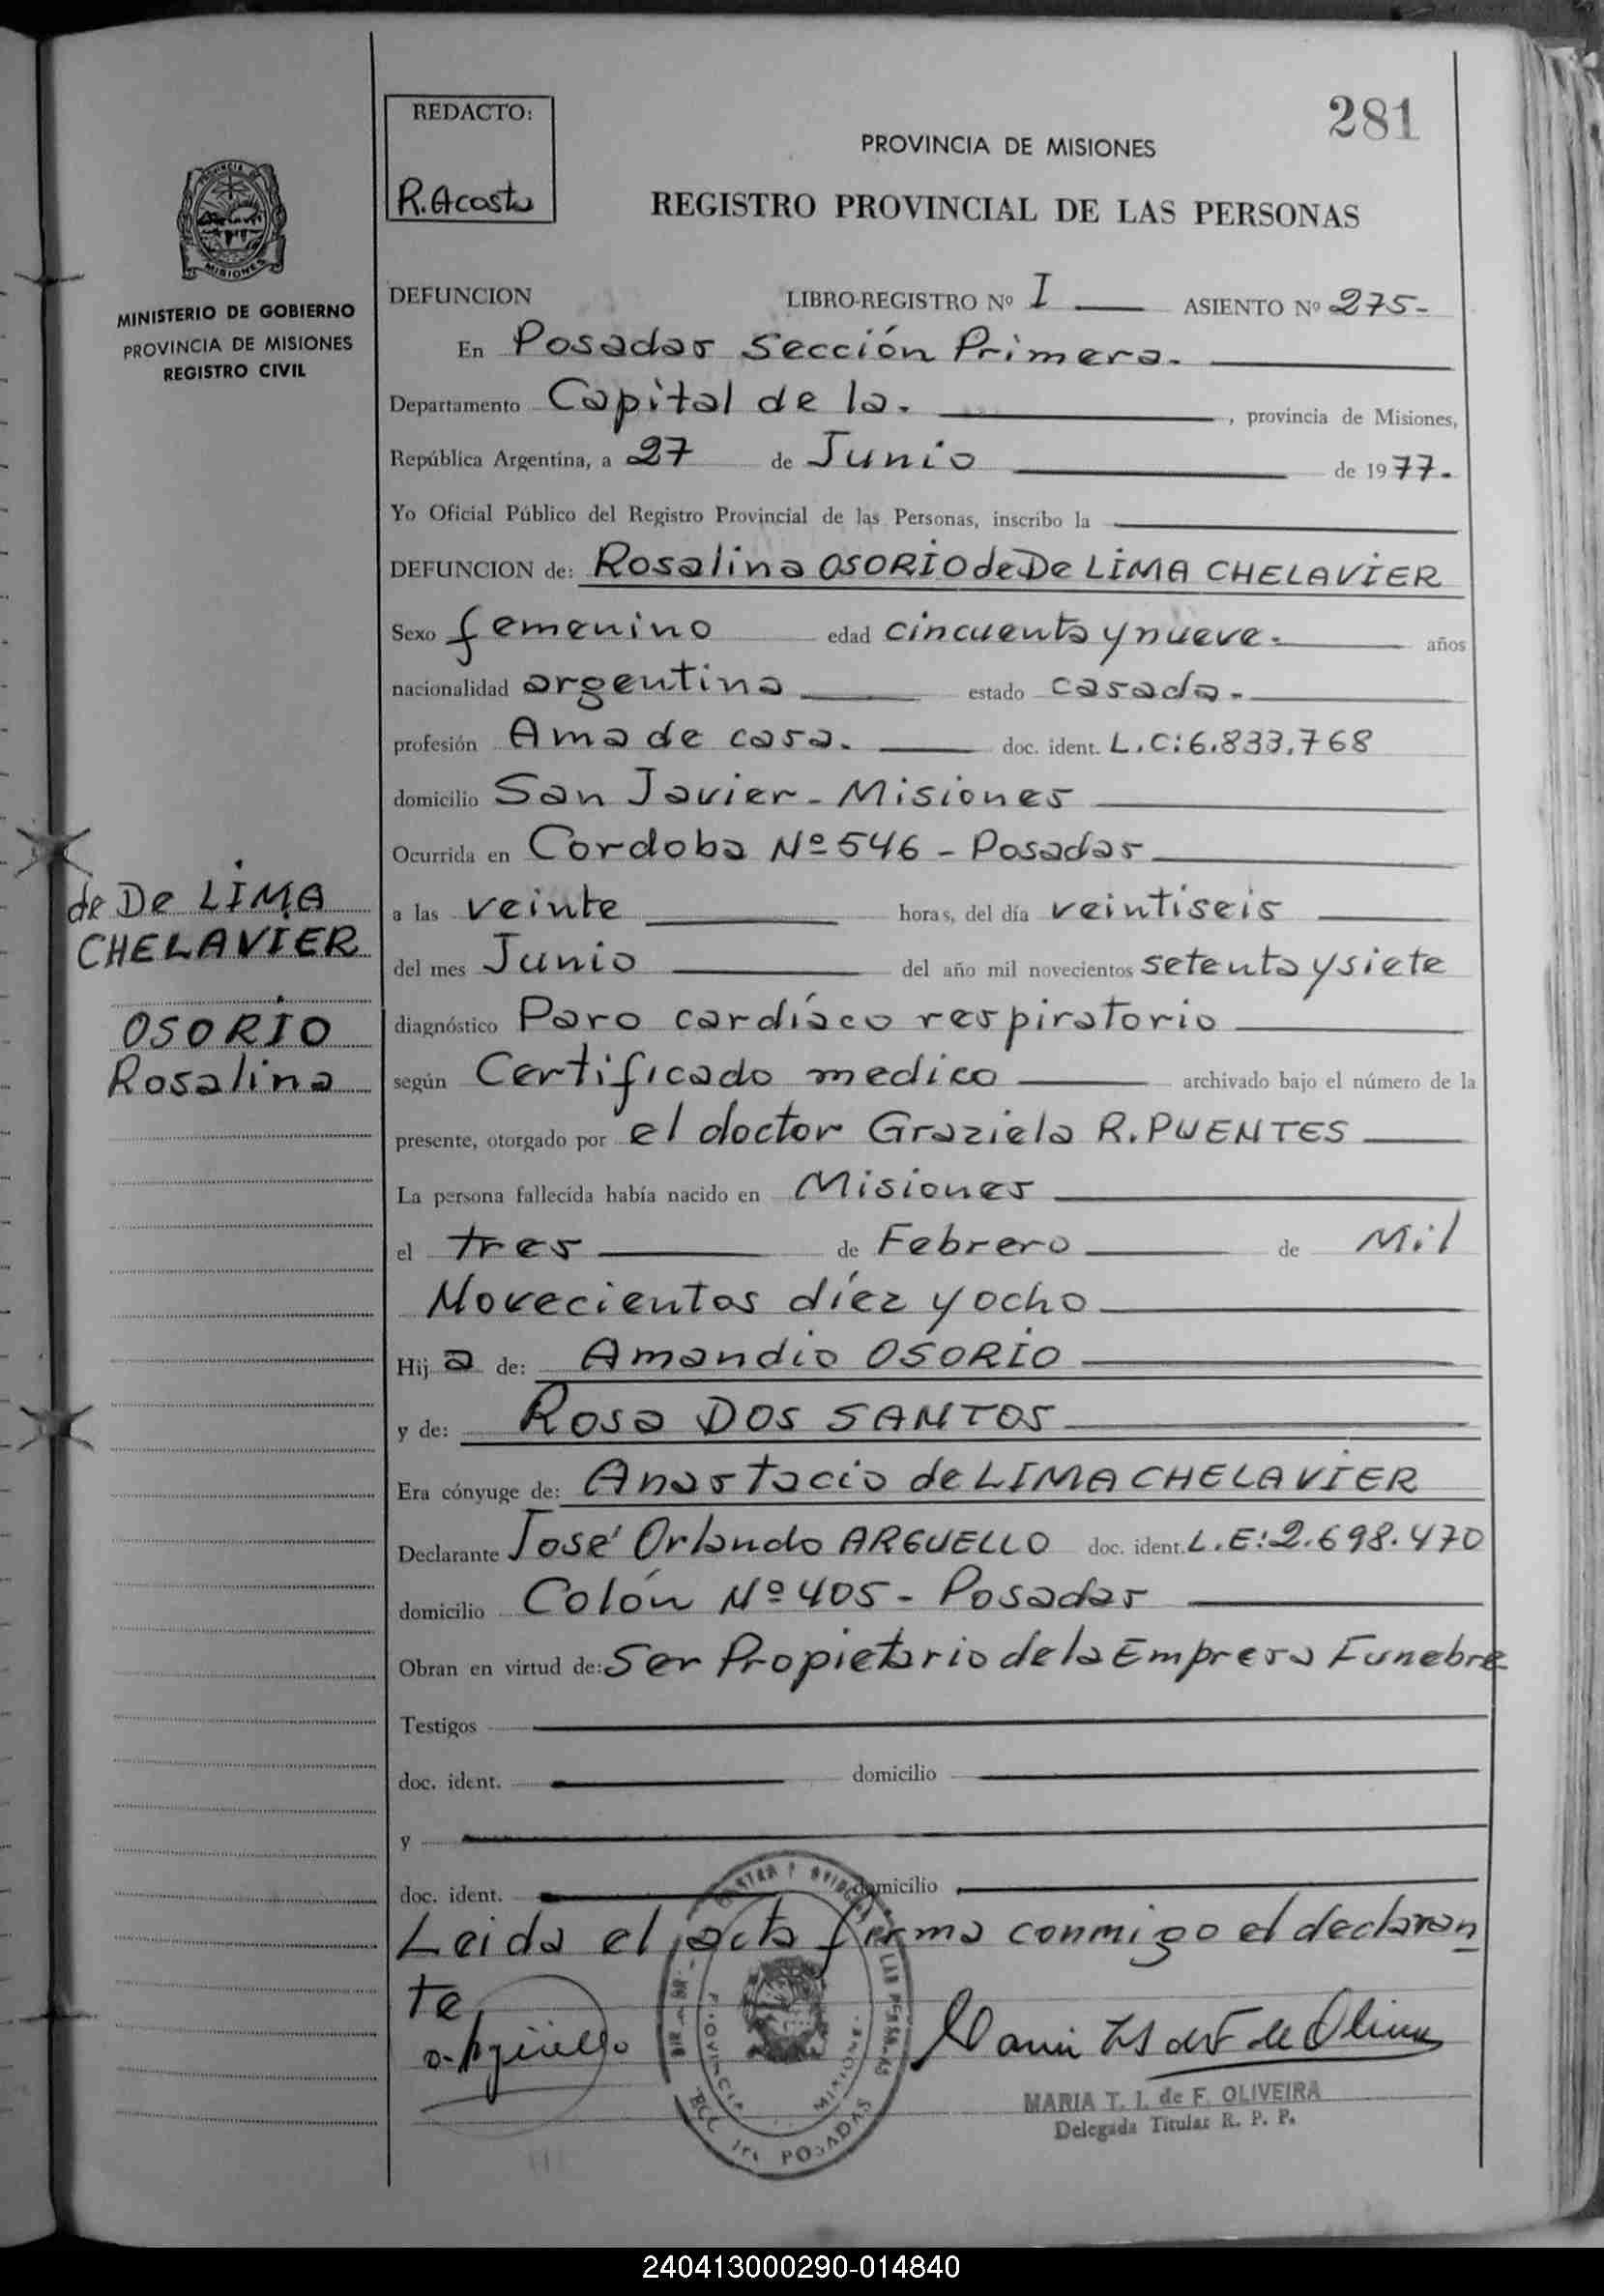 281
REDACTO:
R. Acosta
PROVINCIA DE MISIONES
REGISTRO PROVINCIAL DE LAS PERSONAS
PROVINCIA DE
MISIONES
MINISTERIO DE GOBIERNO
PROVINCIA DE MISIONES
REGISTRO CIVIL
DEFUNCION LIBRO-REGISTRO Nº I ASIENTO Nº 275-
En Posadas Sección Primera.
Departamento Capital de la. , provincia de Misiones,
República Argentina, a 27 de Junio de 1977.
Yo Oficial Público del Registro Provincial de las Personas, inscribo la
DEFUNCION de: Rosalina OSORIO de De LIMA CHELAVIER
Sexo femenino edad cincuenta y nueve. años
nacionalidad argentina estado casada.
profesión Ama de casa. doc. ident. L.C:6.833.768
domicilio San Javier - Misiones
Ocurrida en Cordoba Nº 546 - Posadas
a las veinte horas, del día veintiseis
del mes Junio del año mil novecientos setenta y siete
diagnóstico Paro cardíaco respiratorio
según Certificado medico archivado bajo el número de la
presente, otorgado por el doctor Graziela R. PUENTES
La persona fallecida había nacido en Misiones
el tres de Febrero de Mil
Novecientos díez y ocho
Hij a de: Amandio OSORIO
y de: Rosa DOS SANTOS
Era cónyuge de: Anastacio de LIMA CHELAVIER
Declarante José Orlando ARGUELLO doc. ident. L.E:2.698.470
domicilio Colón Nº 405 - Posadas
Obran en virtud de: Ser Propietario de la Empresa Funebre
Testigos
doc. ident. domicilio
y
doc. ident. domicilio
Leida el acta firma conmigo el declaran
te
de De LIMA
CHELAVIER
OSORIO
Rosalina
o. Argüello
POSADAS
MARIA T. I. de F. OLIVEIRA
Delegada Titular R. P. P.
240413000290-014840